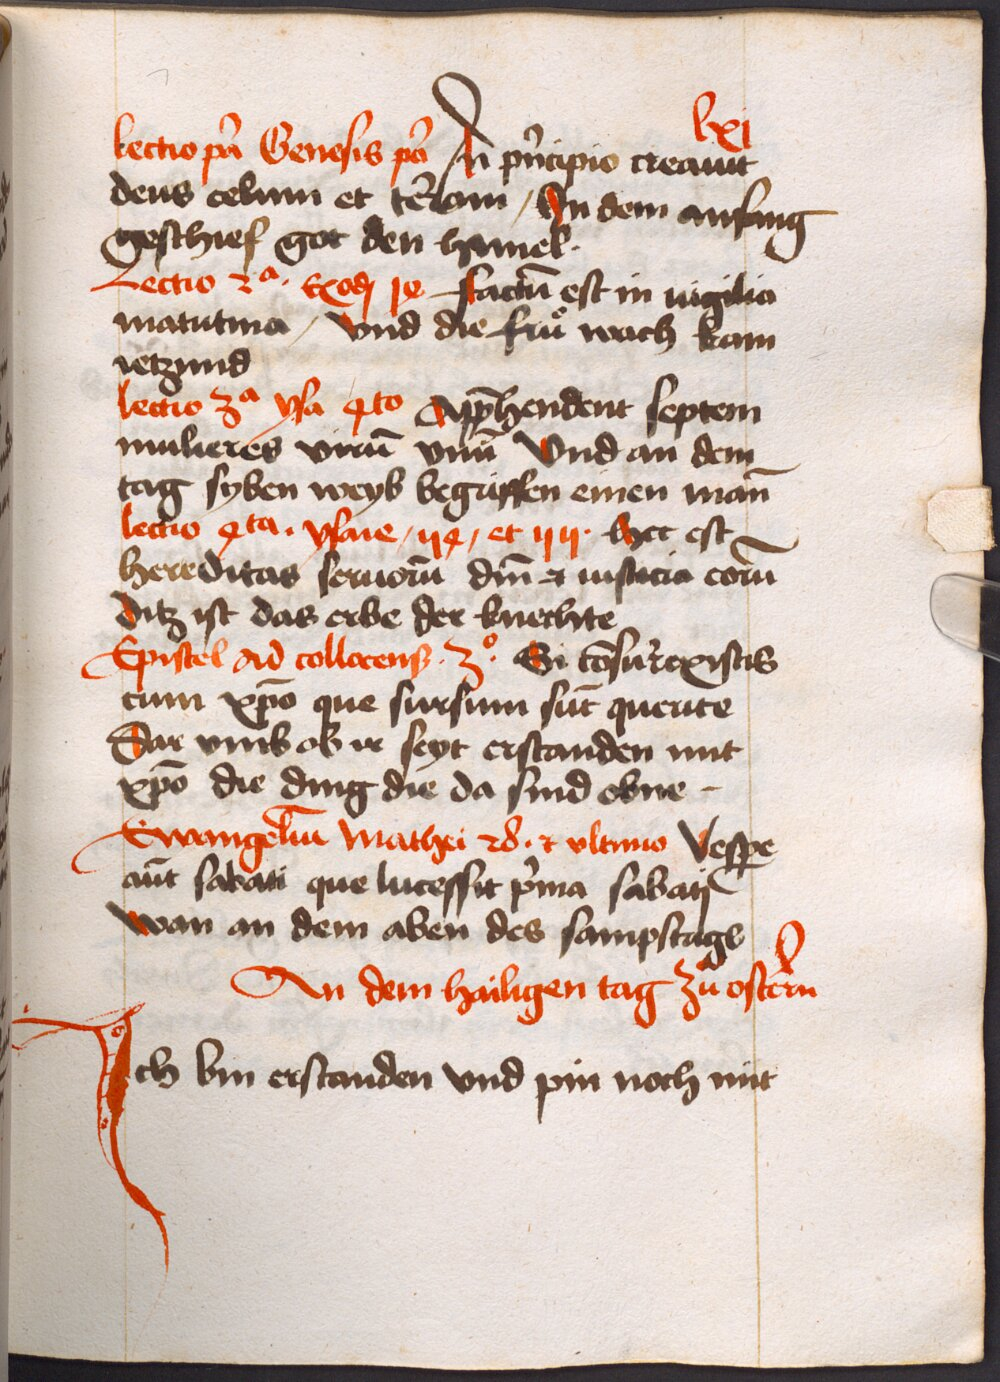 lxi
lectio p̄a Genesis p̄o In p̄ncipio creauit
deus celum et tēram / In dem anfang
geschief got den himel.
Lectio 2ᵃ. Exodi factū est in uigilia
matutina / Vnd die frů wach kam
ietzund
lectio 3ᵃ ysa 4to Apphendent septem
mulieres virū vnū Vnd an dem
tag syben weyb begriffen einen man̄
lectio 4ta. ysaie et Hec est
hereditas seruorū dn̄i et iusticia eorū
Ditz ist das erbe der knechte
Epistel Ad collocens. 3º. Si cōsurrexistis
cum xp̄o que sursum sūt querite
Dar vmb ob ir seyt erstanden mit
xp̄o die ding die da sind obne
Ewangeliū Mathei 28. et vltimo Vespe
aūt sabati que lucessit p̄ma sabati
wan an dem aben des sampstags
An dem hailigen tag zů ostern
Ich bin erstanden vnd pin noch mit